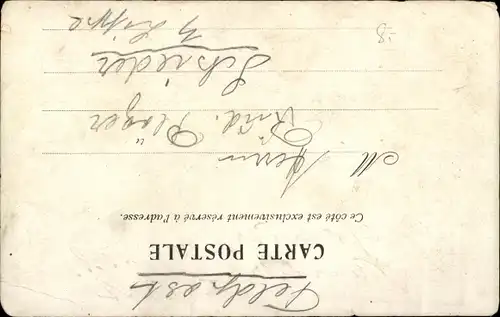 Feldpost
CARTE POSTALE
Ce côté est exclusivement réservé à l'adresse.
M Herrn
Rud. Plöger
Schieder
i/ Lippe